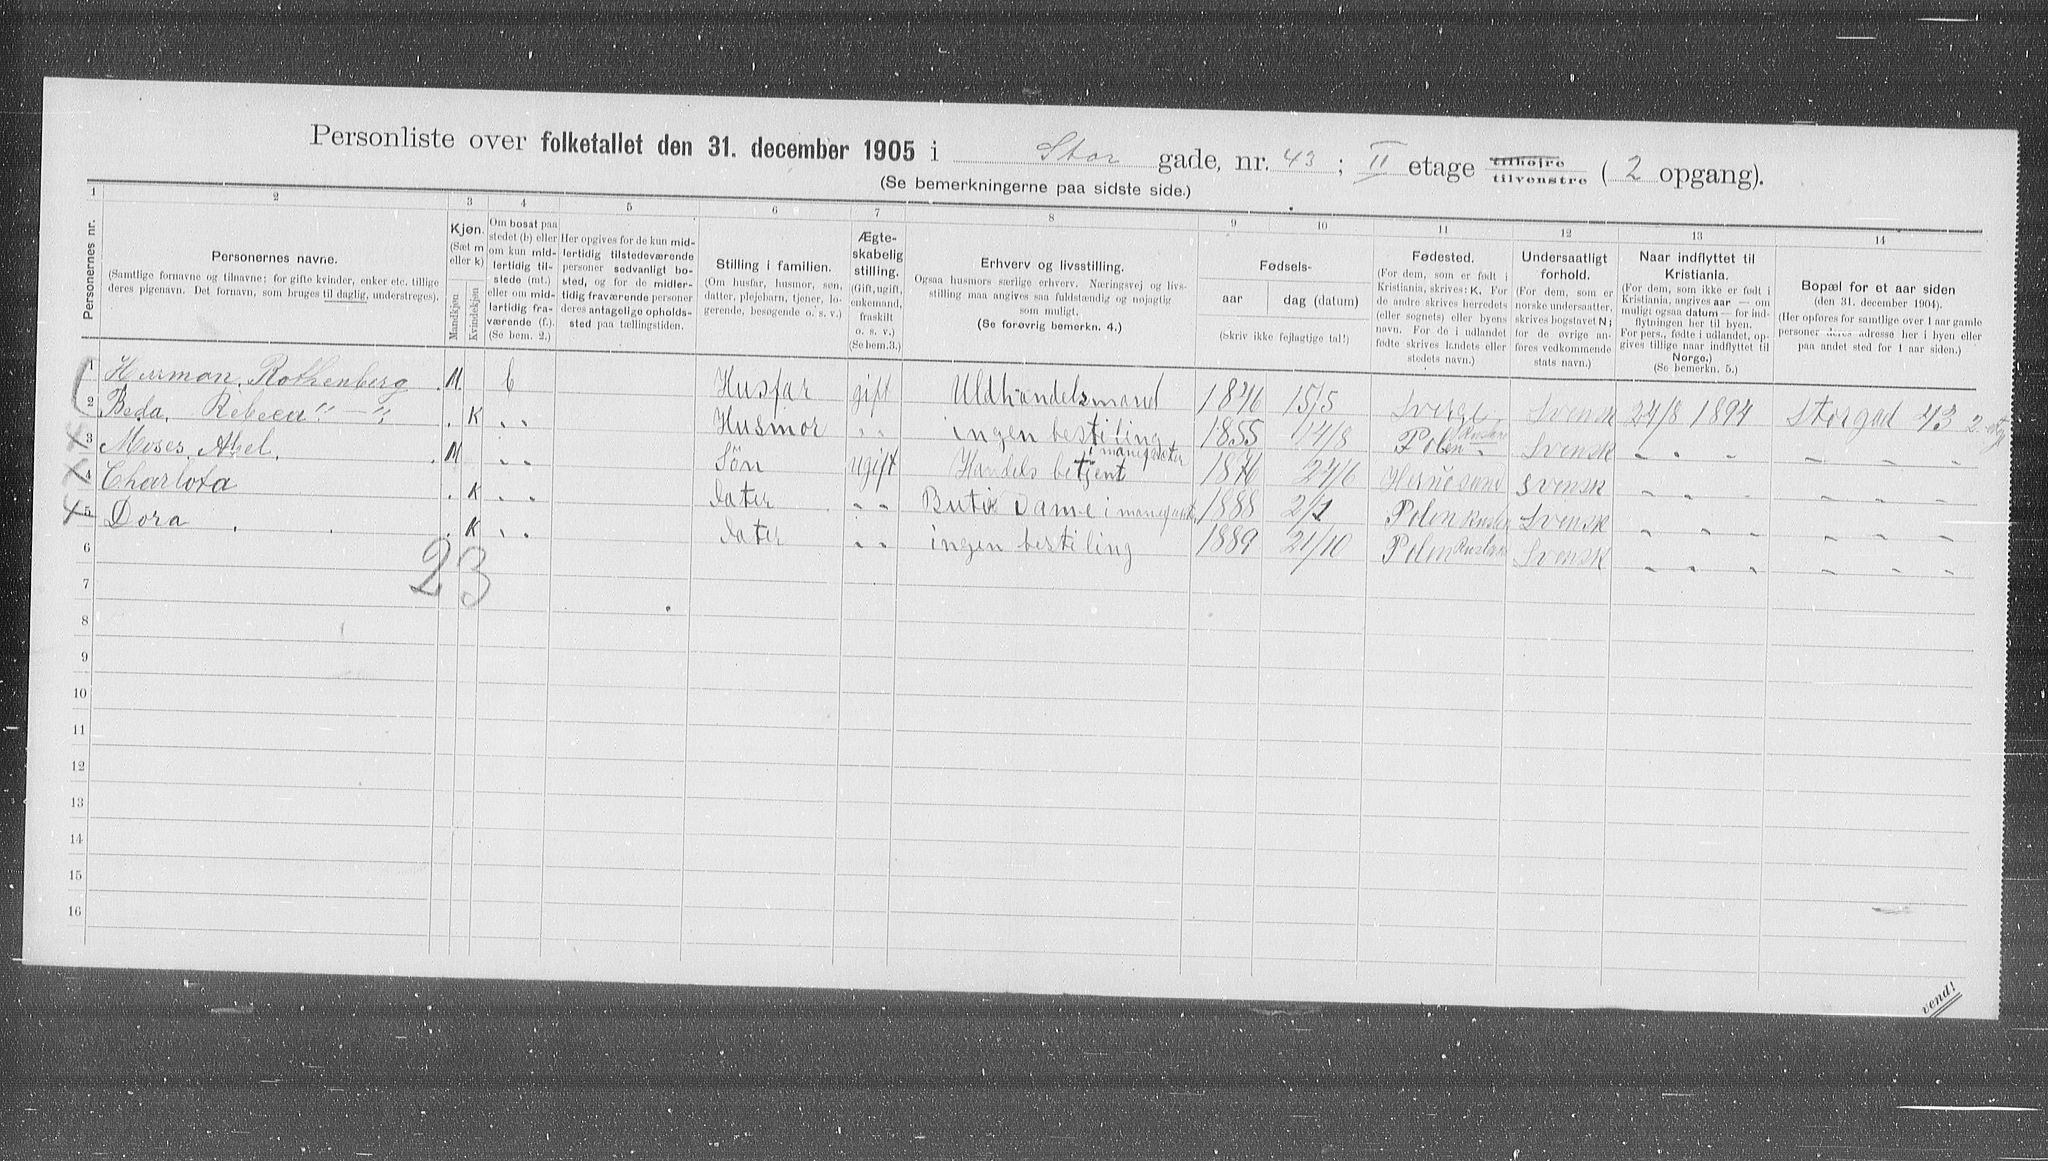 Personliste over folketallet den 31. december 1905 i Stor gade, nr. 43 ; II etage tilhøjre tilvenstre ( 2 opgang).
(Se bemerkningerne paa sidste side.)
1 2 3 4 5 6 7 8 9 10 11 12 13 14
Personernes nr.
Personernes navne.
(Samtlige fornavne og tilnavne; for gifte kvinder, enker etc. tillige
deres pigenavn. Det fornavn, som bruges til daglig, understreges).
Kjøn.
(Sæt m
eller k)
Mandkjøn
Kvindekjøn
Om bosat paa
stedet (b) eller
om kun mid-
lertidig til-
stede (mt.)
eller om mid-
lertidig fra-
værende (f.).
(Se bem. 2.)
Her opgives for de kun mid-
lertidig tilstedeværende
personer sedvanligt bo-
sted, og for de midler-
tidig fraværende personer
deres antagelige opholds-
sted paa tællingstiden.
Stilling i familien.
(Om husfar, husmor, søn,
datter, plejebarn, tjener, lo-
gerende, besøgende o. s. v.)
Ægte-
skabelig
stilling.
(Gift, ugift,
enkemand,
fraskilt
o. s. v.)
(Se bem.3.)
Erhverv og livsstilling.
Ogsaa husmors særlige erhverv. Næringsvej og livs-
stilling maa angives saa fuldstændig og nøjagtig
som muligt.
(Se forøvrig bemerkn. 4.)
Fødsels-
aar
dag (datum)
(Skriv ikke fejlagtige tal!)
Fødested.
(For dem, som er født i
Kristiania, skrives: K. For
de andre skrives herredets
(eller sognets) eller byens
navn. For de i udlandet
fødte skrives landets eller
stedets navn.)
Undersaatligt
forhold.
(For dem, som er
norske undersaatter,
skrives bogstavet N;
for de øvrige an-
føres vedkommende
stats navn.)
Naar indflyttet til
Kristiania.
(For dem, som ikke er født i
Kristiania, angives aar — om
muligt ogsaa datum — for ind-
flytningen her til byen.
For pers., fødte i udlandet, op-
gives tillige naar indflyttet til
Norge.)
(Se bemerkn. 5.)
Bopæl for et aar siden
(den 31. december 1904).
(Her opføres for samtlige over 1 aar gamle
personer deres adresse her i byen eller
paa andet sted for 1 aar siden.)
1 Herman, Rothenberg M b Husfar gift Uldhandelsmand 1846 15/5 Sverge Svensk 24/8 1894 Storgad 43 2
2 Beda, Rebeca "—" K " Husmor " ingen bestiling 1855 14/8 Polen Svensk " "
3 Moses, Abel M " Søn ugift Handels betjent i 1876 24/6 Hernösand Svensk " "
4 Charlota K " dater " Butik Dame i 1888 2/1 Polen Svensk " "
5 Dora K " dater " ingen bestiling 1889 21/10 Polen Svensk " "
6
23
7
8
9
10
11
12
13
14
15
16
vend!